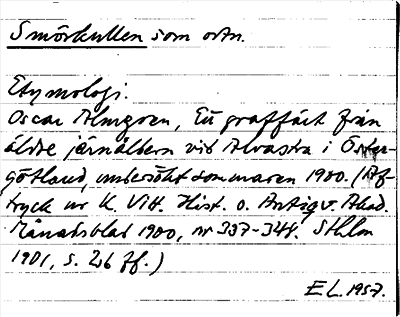 Smörkullen som ortn.
Etymologi.
Oscar Almgren, Ett graffält från
äldre järnåldern vid Alvastra i Öster-
götland, undersökt sommaren 1900. (Af-
tryck ur K. Vitt. Hist. o. Antiqv. Akad.
Månadsblad 1900, nr 337-348. Sthlm
1901, s. 26 ff.)
E L. 1957.